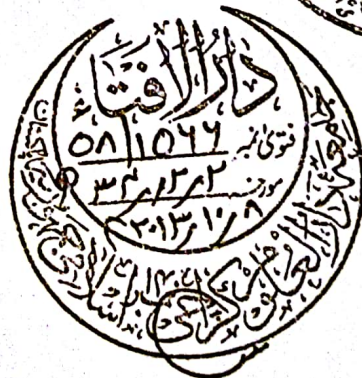 دارُ الافتاء
فتویٰ نمبر ۵۸/۱۵۶۶
مورخہ ۳۴/۱۲/۲
۲۰۱۳/۱۰/۸
جامعہ دارالعلوم کراچی